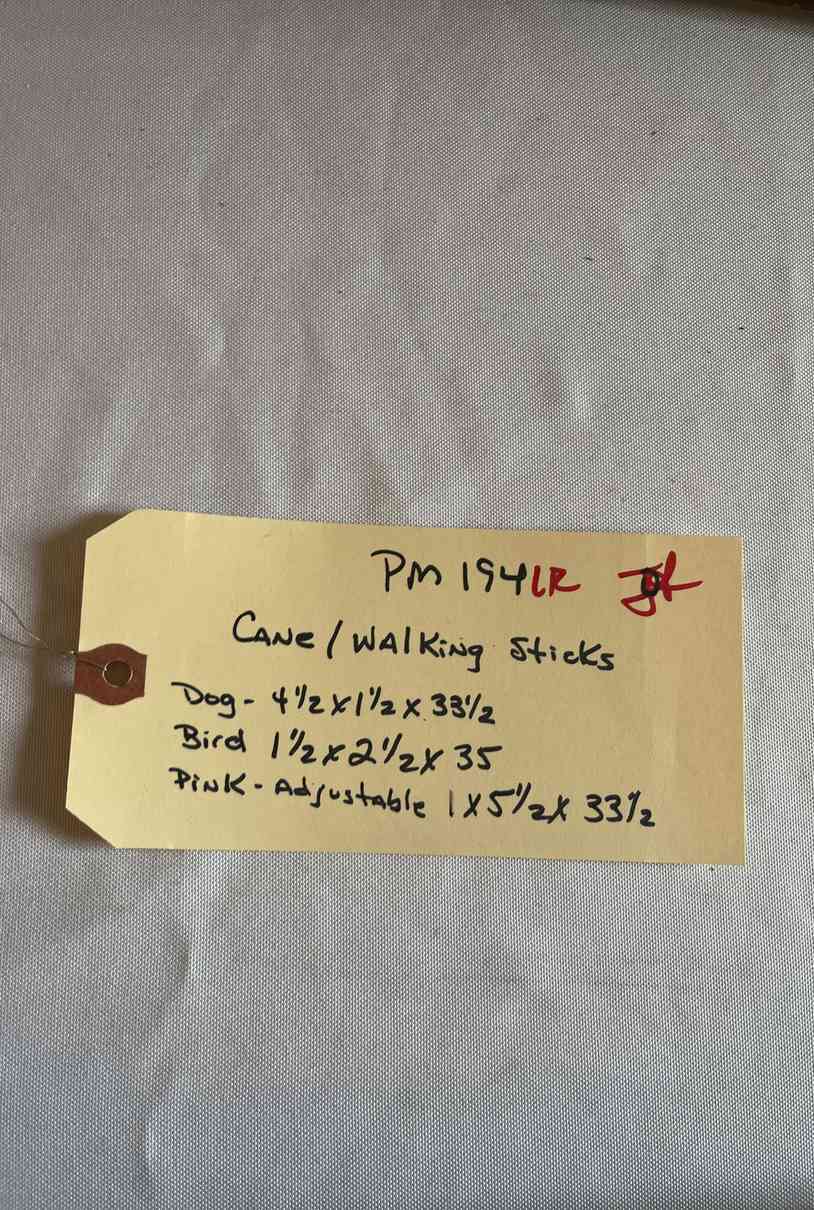 PM 194LR
CANE / WALKiNg SticKs
Dog - 4 1/2 X 1 1/2 X 33 1/2
Bird 1 1/2 X 2 1/2 X 35
PiNK - Adjustable 1 X 5 1/2 X 33 1/2